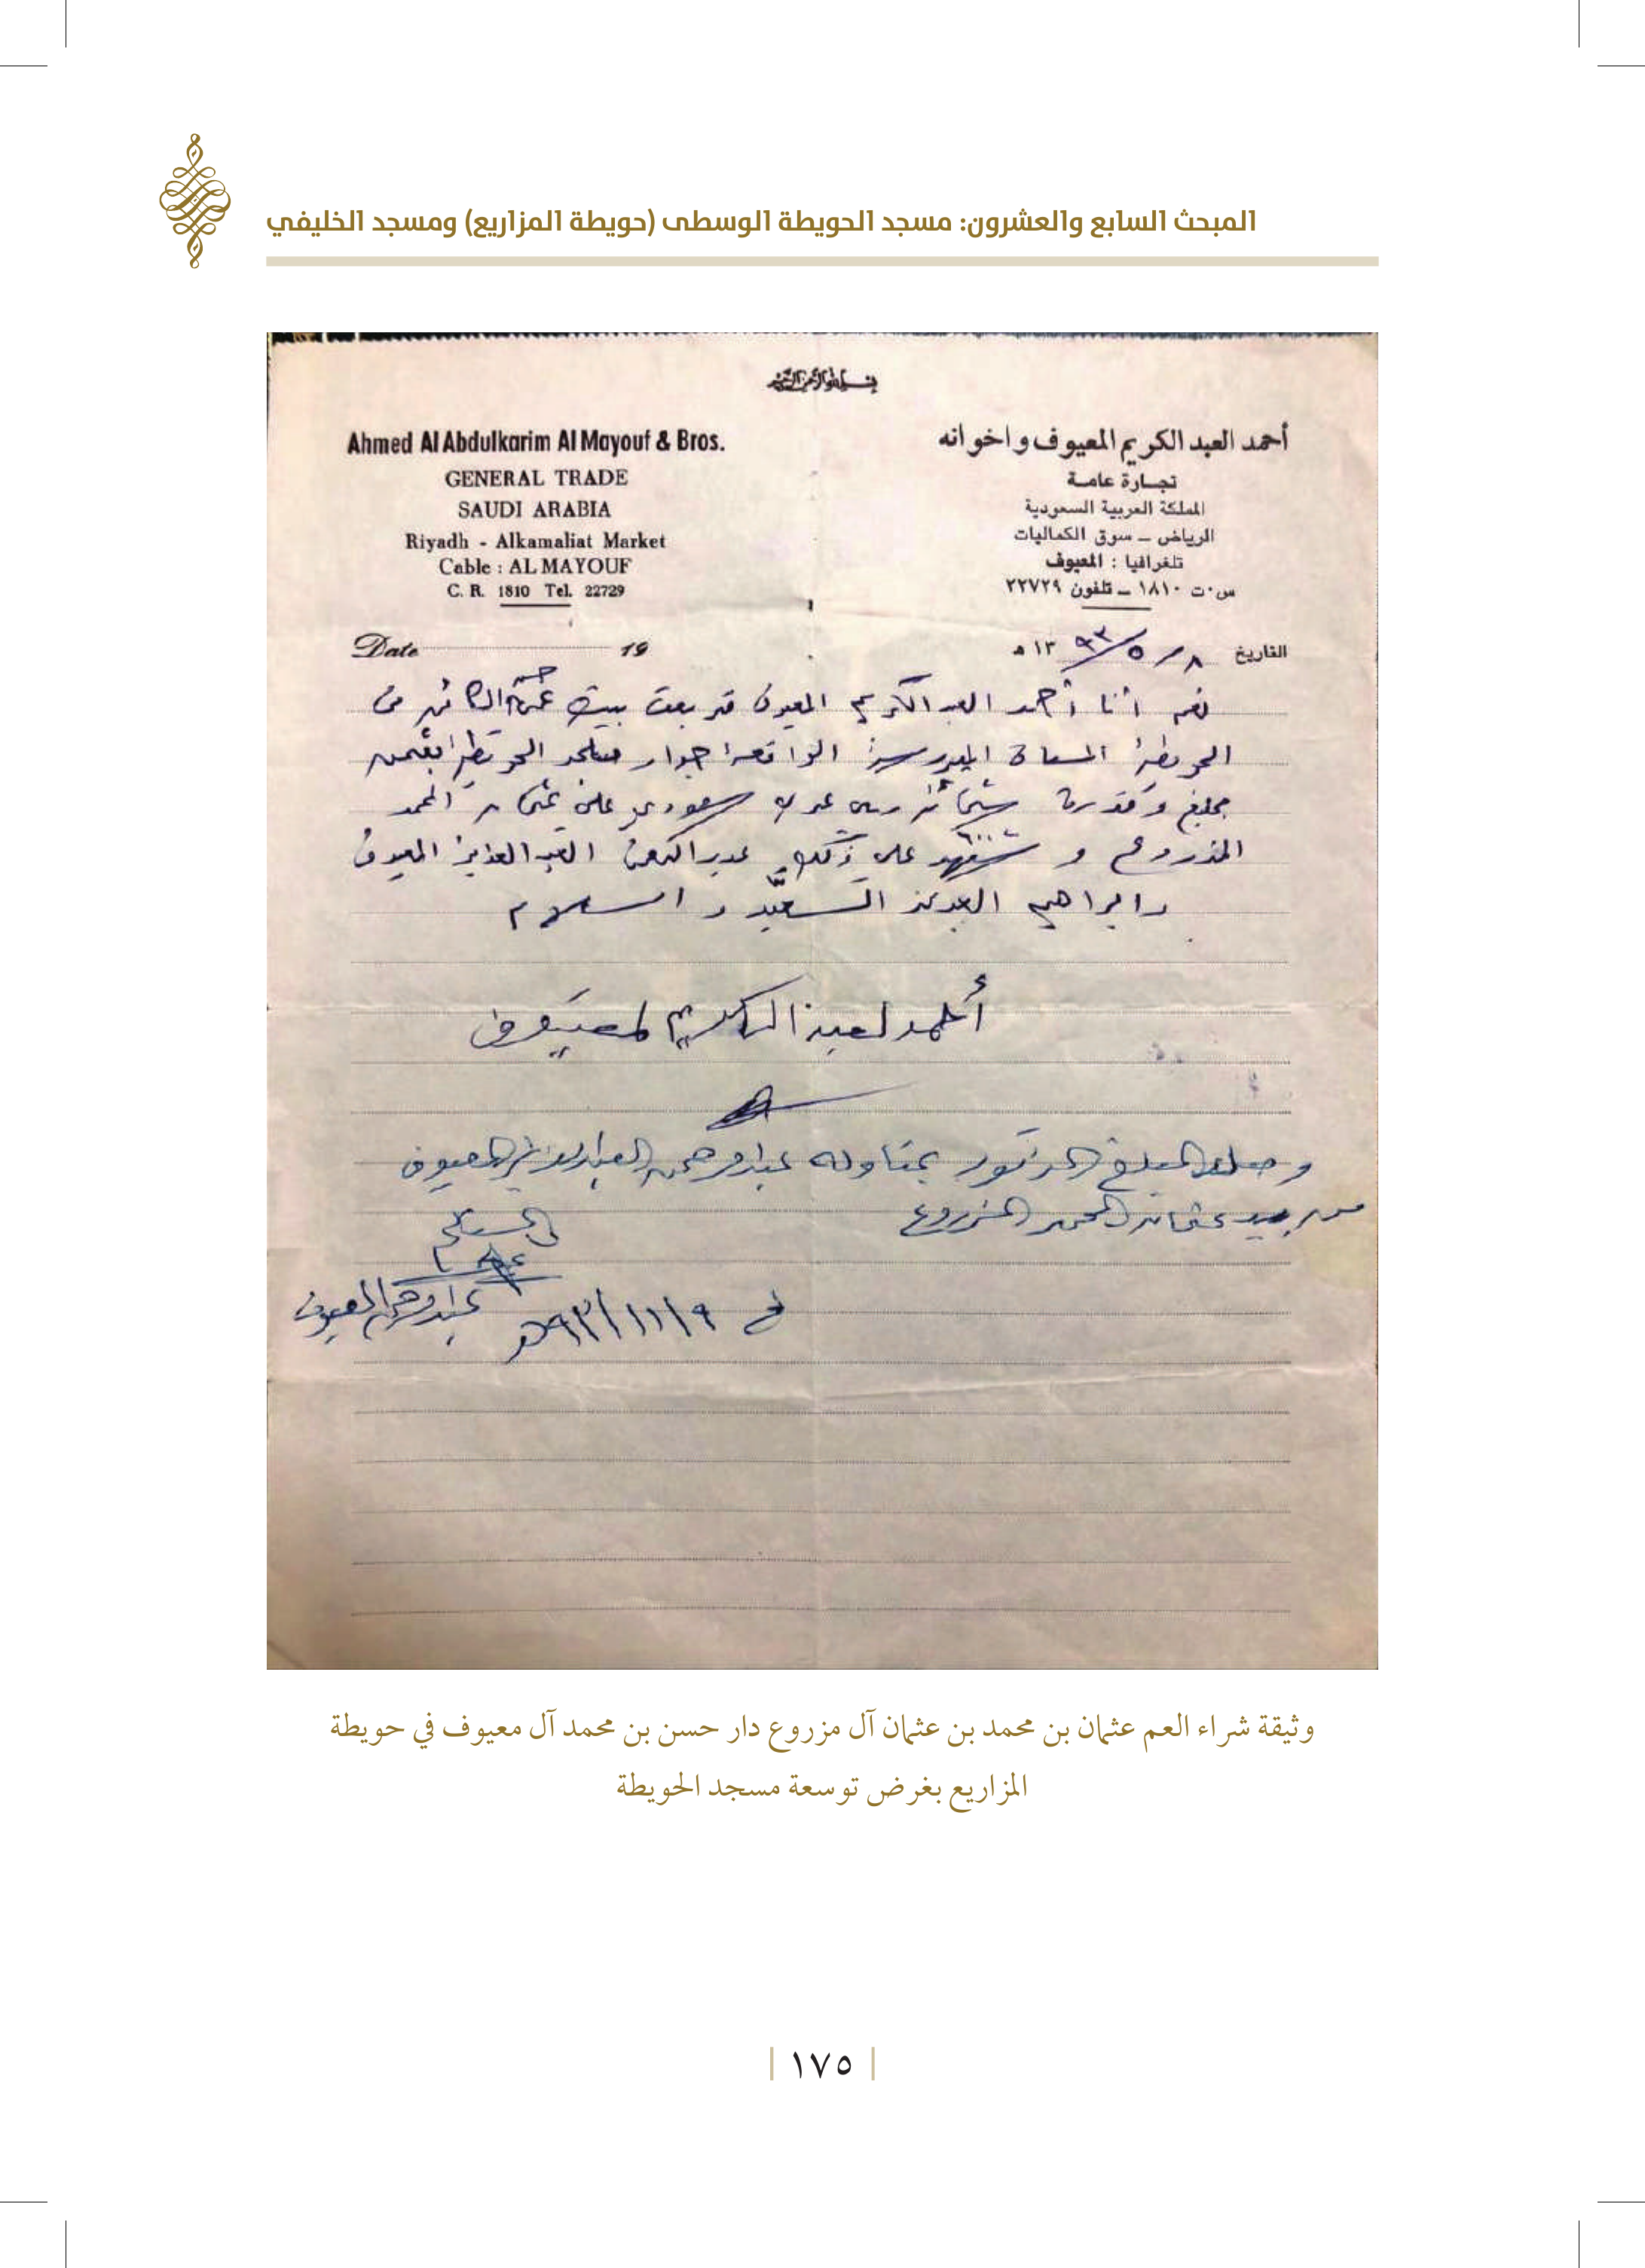 المبحث السابع والعشرون: مسجد الحويطة الوسطى (حويطة المزاريع) ومسجد الخليفي
بسم الله الرحمن الرحيم
أحمد العبد الكريم المعيوف واخوانه
تجارة عامة
المملكة العربية السعودية
الرياض - سوق الكماليات
تلغرافيا : المعيوف
س.ت ١٨١٠ - تلفون ٢٢٧٢٩
Ahmed Al Abdulkarim Al Mayouf & Bros.
GENERAL TRADE
SAUDI ARABIA
Riyadh - Alkamaliat Market
Cable : AL MAYOUF
C. R. 1810 Tel. 22729
التاريخ ٨ / ٥ / ١٣٩٣ هـ
Date 19
نعم أنا أحمد العبد الكريم المعيوف قد بعت بيت عمي حسن الكائن من
الحويطة المسماة الواقعة جوار مسجد الحويطة بثمن
مبلغ وقدره ستمائة ريال عربي سعودي على عثمان المحمد
٦٠٠
المزروع و شهد على ذلك عبد الرحمن العبد العزيز المعيوف
وابراهيم السعيد والسلام
أحمد لعبد الكريم لمعيوف
وصلنا المبلغ المذكور بمناوله عبدالرحمن العبدالعزيز المعيوف
من يد عثمان المحمد المزروع
المستلم
عبدالرحمن المعيوف
في ٩/١١/٩٣هـ
وثيقة شراء العم عثمان بن محمد بن عثمان آل مزروع دار حسن بن محمد آل معيوف في حويطة
المزاريع بغرض توسعة مسجد الحويطة
١٧٥